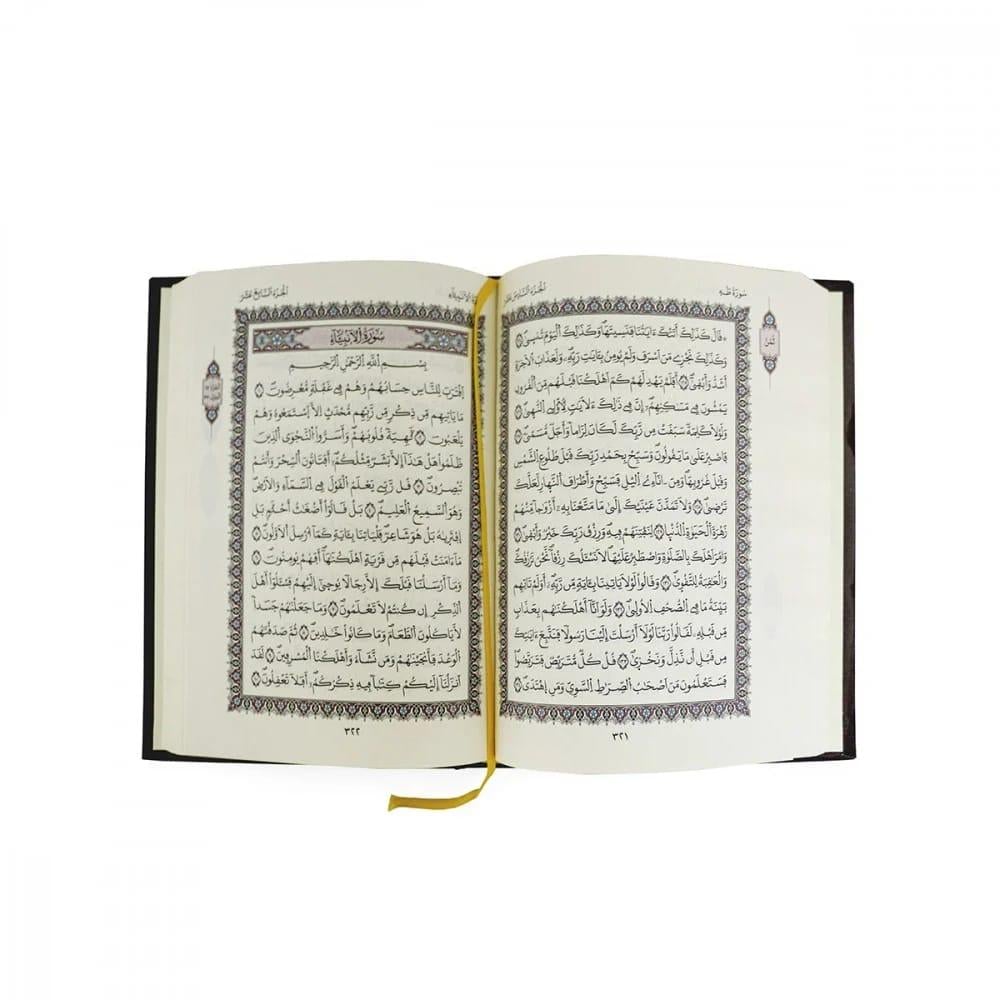 سُورَةُ طَهَ
الجُزْءُ السَّادِسَ عَشَرَ
ثُمُنْ
قَالَ كَذَٰلِكَ أَتَتْكَ ءَايَٰتُنَا فَنَسِيتَهَا وَكَذَٰلِكَ اَ۬لْيَوْمَ تُنس۪يٰ
وَكَذَٰلِكَ نَجْزِے مَنَ اَسْرَفَ وَلَمْ يُومِنۢ بِـَٔايَٰتِ رَبِّهِۦ وَلَعَذَابُ اُ۬لَاخِرَةِ
أَشَدُّ وَأَبْق۪يٰٓ أَفَلَمْ يَهْدِ لَهُمْ كَمَ اَهْلَكْنَا قَبْلَهُم مِّنَ اَ۬لْقُرُونِ
يَمْشُونَ فِے مَسَٰكِنِهِمُۥٓ إِنَّ فِے ذَٰلِكَ ءَلَايَٰتٖ لِّأُوْلِے اِ۬لنُّه۪يٰ
وَلَوْلَا كَلِمَةٞ سَبَقَتْ مِن رَّبِّكَ لَكَانَ لِزَاماٗ وَأَجَلٞ مُّسَمّيٗ
فَاصْبِرْ عَلَيٰ مَا يَقُولُونَ وَسَبِّحْ بِحَمْدِ رَبِّكَ قَبْلَ طُلُوعِ اِ۬لشَّمْسِ
وَقَبْلَ غُرُوبِهَا وَمِنَ اٰنَآءِے اِ۬ليْلِ فَسَبِّحْ وَأَطْرَافَ اَ۬لنَّهَارِ لَعَلَّكَ
تَرْض۪يٰ وَلَا تَمُدَّنَّ عَيْنَيْكَ إِلَيٰ مَا مَتَّعْنَا بِهِۦٓ أَزْوَٰجاٗ مِّنْهُمْ
زَهْرَةَ اَ۬لْحَيَوٰةِ اِ۬لدُّنْي۪ا لِنَفْتِنَهُمْ فِيهِ وَرِزْقُ رَبِّكَ خَيْرٞ وَأَبْق۪يٰ
وَامُرَ اَهْلَكَ بِالصَّلَوٰةِ وَاصْطَبِرْ عَلَيْهَا لَا نَسْـَٔلُكَ رِزْقاٗ نَّحْنُ نَرْزُقُكَ
وَالْعَٰقِبَةُ لِلتَّقْو۪يٰ وَقَالُواْ لَوْلَا يَاتِينَا بِـَٔايَةٖ مِّن رَّبِّهِۦٓ أَوَلَمْ تَاتِهِم
بَيِّنَةُ مَا فِے اِ۬لصُّحُفِ اِ۬لُاول۪يٰ وَلَوَ اَنَّآ أَهْلَكْنَٰهُم بِعَذَابٖ
مِّن قَبْلِهِۦ لَقَالُواْ رَبَّنَا لَوْلَآ أَرْسَلْتَ إِلَيْنَا رَسُولاٗ فَنَتَّبِعَ ءَايَٰتِكَ
مِن قَبْلِ أَن نَّذِلَّ وَنَخْز۪يٰ قُلْ كُلّٞ مُّتَرَبِّصٞ فَتَرَبَّصُواْ
فَسَتَعْلَمُونَ مَنَ اَصْحَٰبُ اُ۬لصِّرَٰطِ اِ۬لسَّوِيِّ وَمَنِ اِ۪هْتَد۪يٰ
٣٢١
الأَنبِيَاءِ
الجُزْءُ السَّابِعَ عَشَرَ
سُورَةُ الْأَنبِيَآءِ
بِسْمِ اِ۬للَّهِ اِ۬لرَّحْمَٰنِ اِ۬لرَّحِيمِ
اِ۪قْتَرَبَ لِلنَّاسِ حِسَابُهُمْ وَهُمْ فِے غَفْلَةٖ مُّعْرِضُونَ
مَا يَاتِيهِم مِّن ذِكْرٖ مِّن رَّبِّهِم مُّحْدَثٍ اِلَّا اَ۪سْتَمَعُوهُ وَهُمْ
يَلْعَبُونَ لَٰهِيَةٗ قُلُوبُهُمْ وَأَسَرُّواْ اُ۬لنَّجْوَي اَ۬لذِينَ
ظَلَمُواْ هَلْ هَٰذَآ إِلَّا بَشَرٞ مِّثْلُكُمُۥٓ أَفَتَاتُونَ اَ۬لسِّحْرَ وَأَنتُمْ
تُبْصِرُونَ قُل رَّبِّے يَعْلَمُ اُ۬لْقَوْلَ فِے اِ۬لسَّمَآءِ وَالَارْضِ
وَهُوَ اَ۬لسَّمِيعُ اُ۬لْعَلِيمُ بَلْ قَالُوٓاْ أَضْغَٰثُ أَحْلَٰمِۢ بَلِ
اِ۪فْتَر۪يٰهُ بَلْ هُوَ شَاعِرٞ فَلْيَاتِنَا بِـَٔايَةٖ كَمَآ أُرْسِلَ اَ۬لَاوَّلُونَ
مَآ ءَامَنَتْ قَبْلَهُم مِّن قَرْيَةٍ اَهْلَكْنَٰهَآ أَفَهُمْ يُومِنُونَ
وَمَآ أَرْسَلْنَا قَبْلَكَ إِلَّا رِجَالاٗ يُوح۪يٰٓ إِلَيْهِمْ فَسْـَٔلُوٓاْ أَهْلَ
اَ۬لذِّكْرِ إِن كُنتُمْ لَا تَعْلَمُونَ وَمَا جَعَلْنَٰهُمْ جَسَداٗ
لَّا يَاكُلُونَ اَ۬لطَّعَامَ وَمَا كَانُواْ خَٰلِدِينَ ثُمَّ صَدَقْنَٰهُمُ
اُ۬لْوَعْدَ فَأَنجَيْنَٰهُمْ وَمَن نَّشَآءُ وَأَهْلَكْنَا اَ۬لْمُسْرِفِينَ لَقَدَ
اَنزَلْنَآ إِلَيْكُمْ كِتَٰباٗ فِيهِ ذِكْرُكُمُۥٓ أَفَلَا تَعْقِلُونَ
٣٢٢